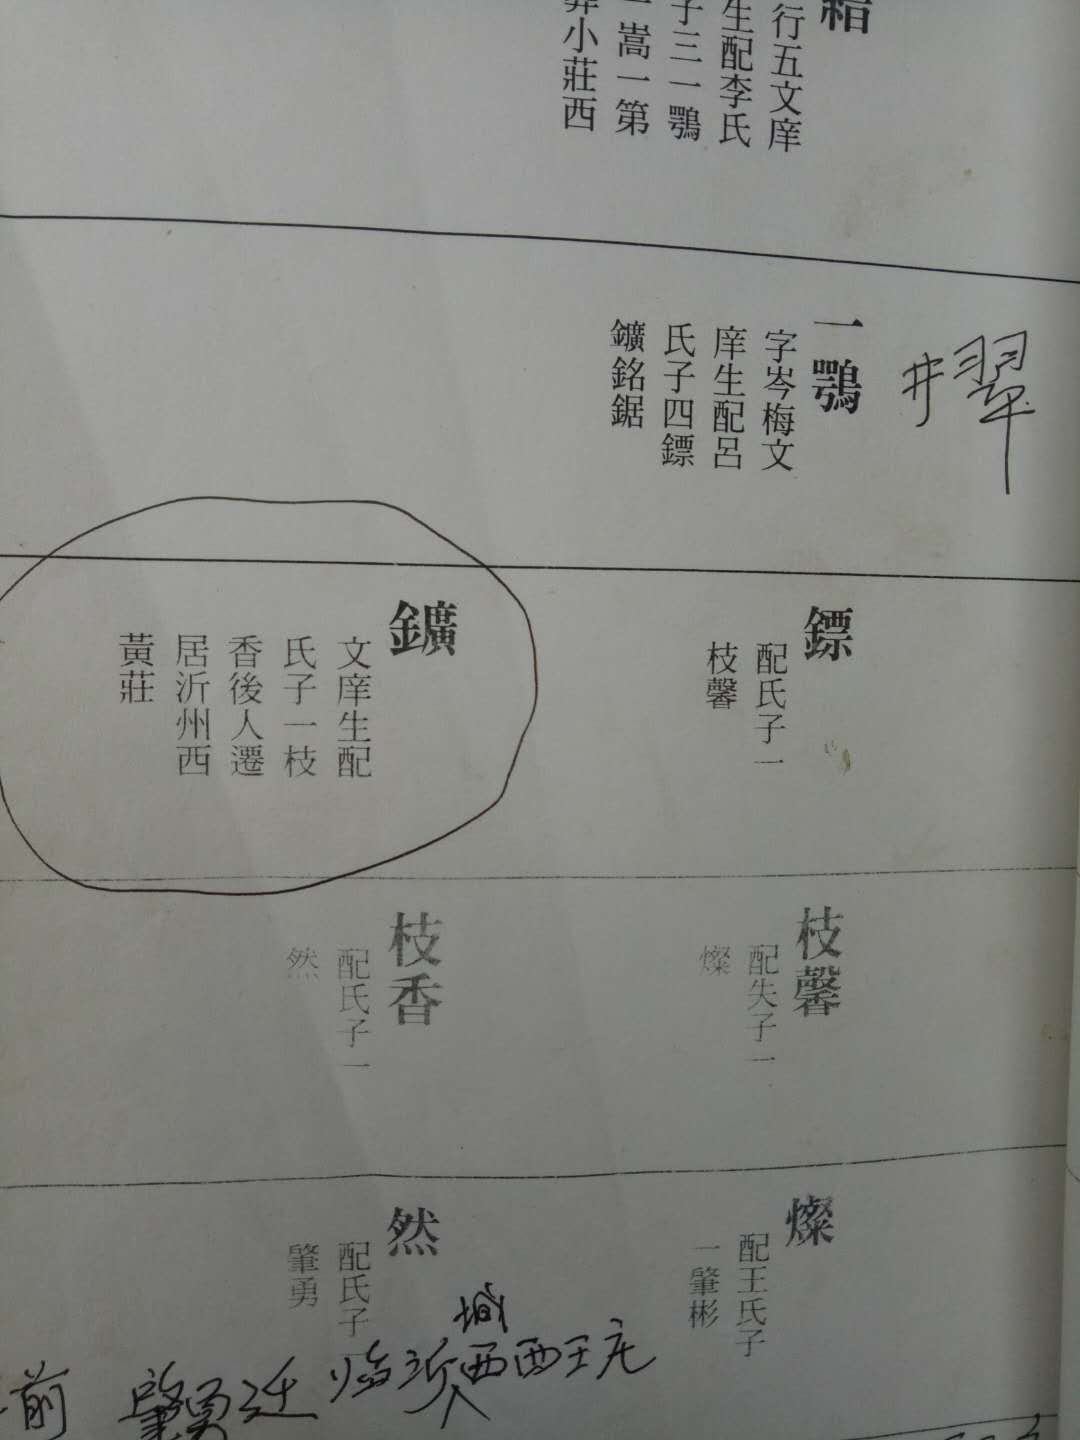 行五文庠
生配李氏
子三一鶚
一嵩一第
葬小莊西
一鶚
字岑梅文
庠生配呂
氏子四鏢
鑛銘鋸
鏢
配氏子一
枝馨
鑛
文庠生配
氏子一枝
香後人遷
居沂州西
黃莊
枝馨
配失子一
燦
枝香
配氏子一
然
燦
配王氏子
一肇彬
然
配氏子一
肇勇
城
前 肇勇迁临沂西西王庄